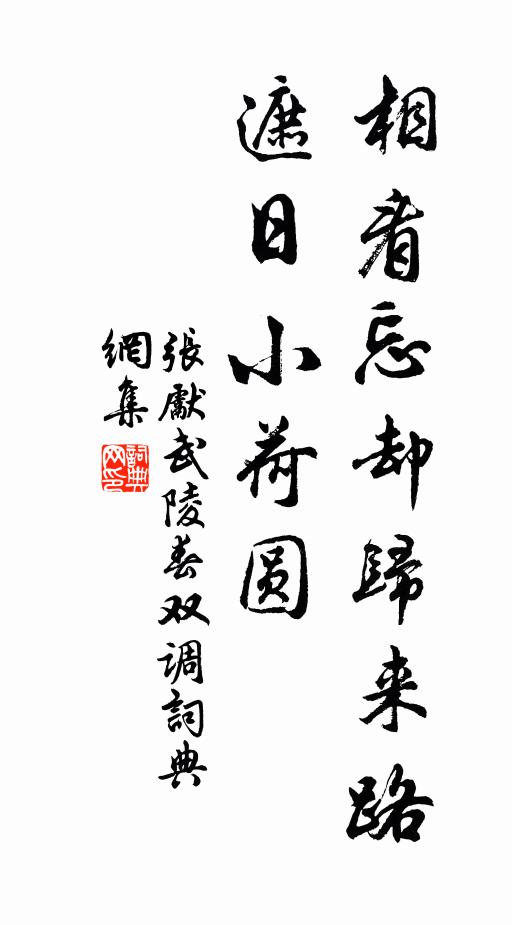 相看忘却歸来路
遮日小荷圆
張獻武陵春双调詞典
網集
詞典
网印